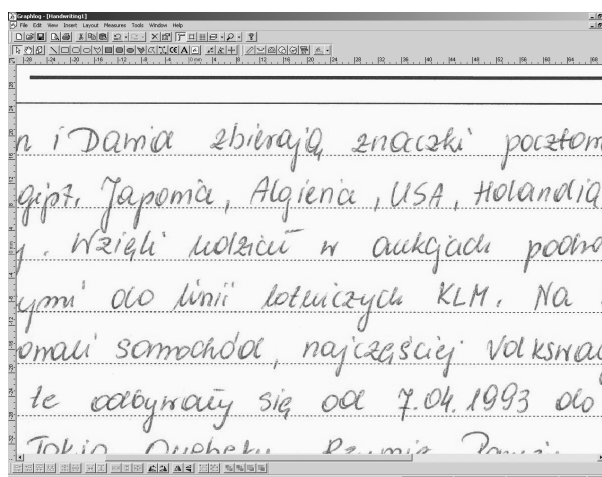 Graphlog - [Handwriting1]
File Edit View Insert Layout Measures Tools Window Help
n i Dania zbierają znaczki pocztow
gipt, Japonia, Algieria, USA, Holandia
. Wzięli udział w aukcjach podno
ymi do linii lotniczych KLM. Na
omali samochód, najczęściej Volkswa
te odbywały się od 7.04.1993 do
Tokio Quebeku Rzymie